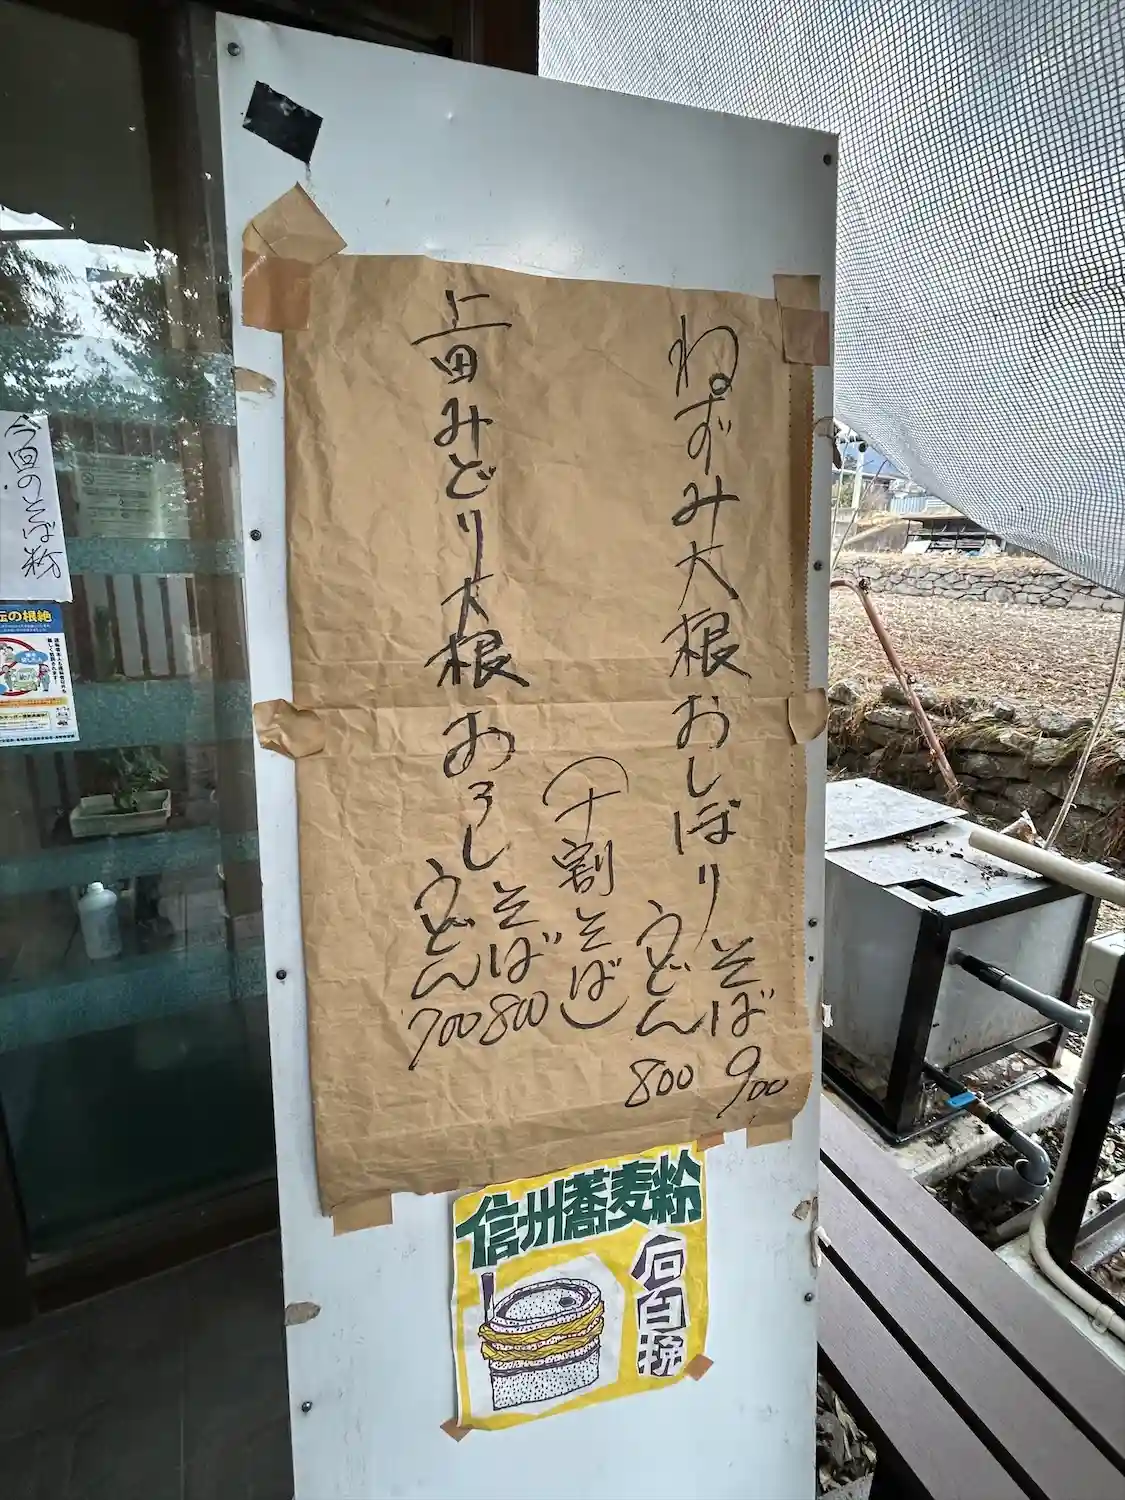 ねずみ大根おしぼりそば900
うどん800
(十割そば)
上田みどり大根おろしそば800
うどん700
信州蕎麦粉
石臼挽
今回のそば粉
の根絶